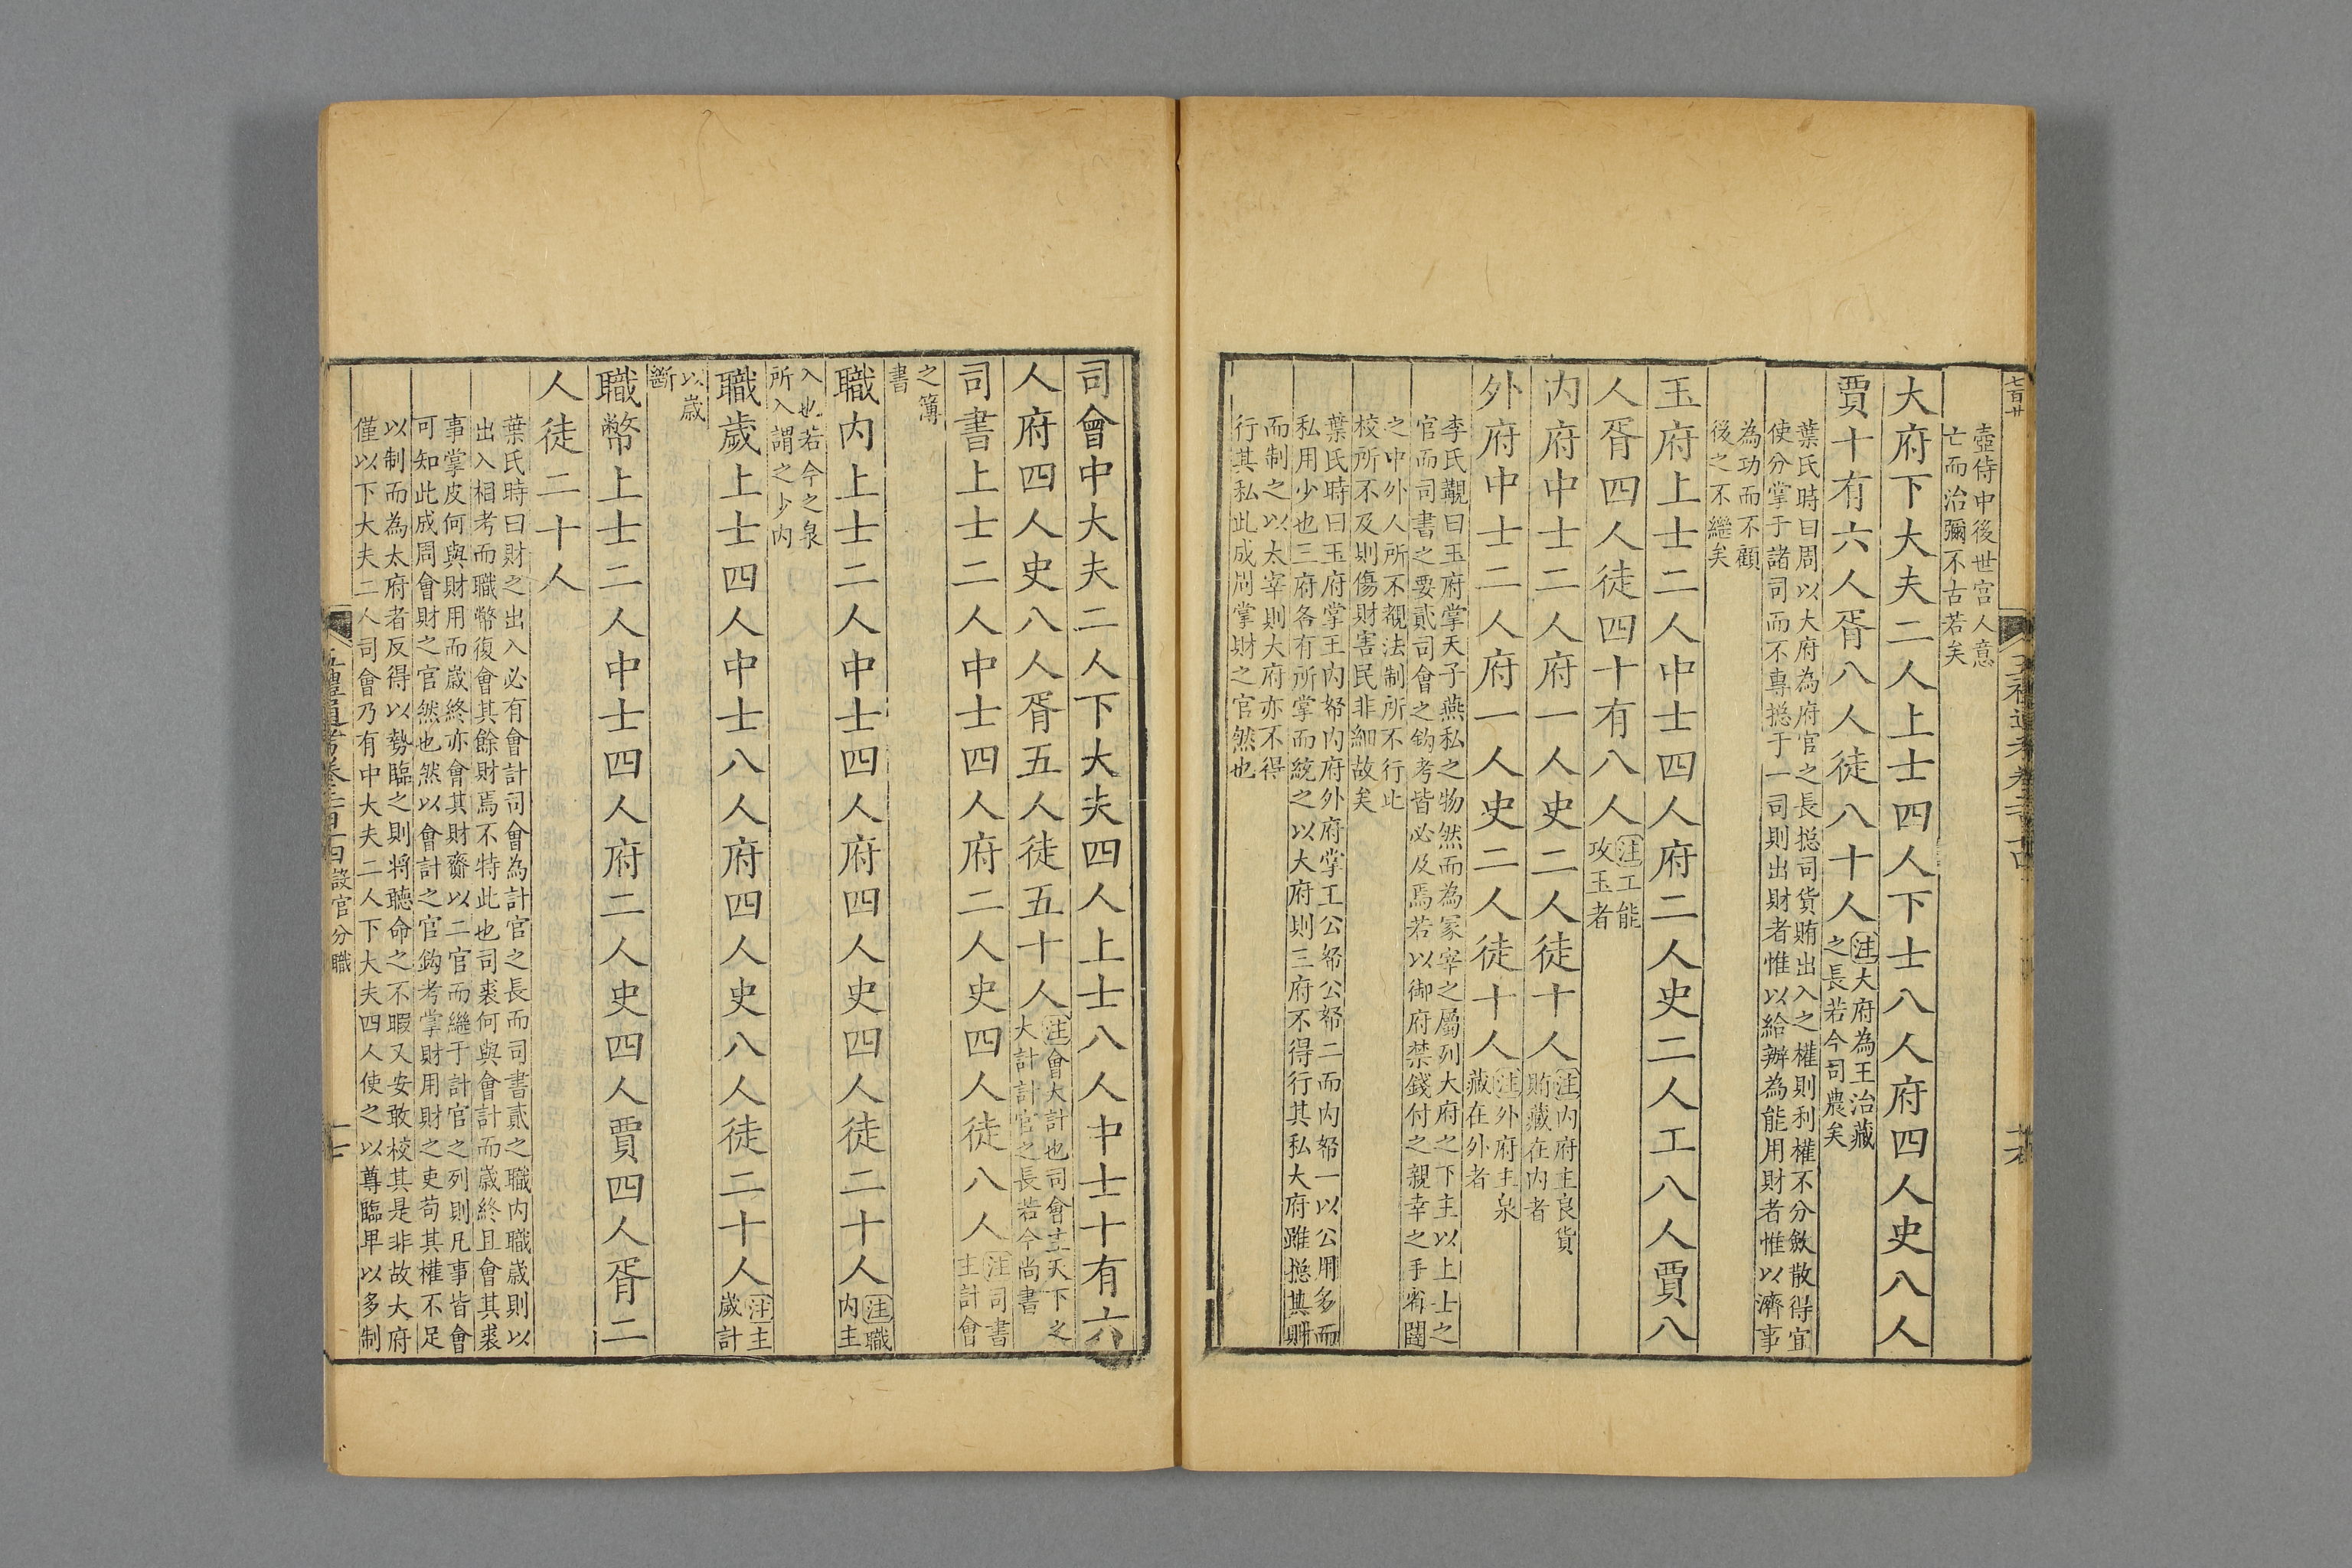 七百廿
壺侍中後世宫人意
亡而治彌不古若矣
大府下大夫二人上士四人下士八人府四人史八人
賈十有六人胥八人徒八十人
注大府為王治藏
之長若今司農矣
葉氏時曰周以大府為府官之長揔司貨賄出入之權則利權不分斂散得宜
使分掌于諸司而不專揔于一司則出財者惟以給辦為能用財者惟以濟事
為功而不顧
後之不繼矣
玉府上士二人中士四人府二人史二人工八人賈八
人胥四人徒四十有八人
注工能
攻玉者
内府中士二人府一人史二人徒十人
注内府主良貨
賄藏在内者
外府中士二人府一人史二人徒十人
注外府主泉
藏在外者
李氏覯曰玉府掌天子燕私之物然而為冢宰之屬列大府之下主以上士之
官而司書之要貳司會之鈎考皆必及焉若以御府禁錢付之親幸之手省闥
之中外人所不覩法制所不行此
校所不及則傷財害民非細故矣
葉氏時曰玉府掌王内帑内府外府掌工公帑公帑二而内帑一以公用多而
私用少也三府各有所掌而統之以大府則三府不得行其私大府雖揔其財
而制之以太宰則大府亦不得
行其私此成周掌財之官然也
司會中大夫二人下大夫四人上士八人中士十有六
人府四人史八人胥五人徒五十人
注會大計也司會主天下之
大計計官之長若今尚書
司書上士二人中士四人府二人史四人徒八人
注司書
主計會
之簿
書
職内上士二人中士四人府四人史四人徒二十人
注職
内主
入也若今之泉
所入謂之少内
職歲上士四人中士八人府四人史八人徒二十人
注主
歲計
以歲
斷
職幣上士二人中士四人府二人史四人賈四人胥二
人徒二十人
葉氏時曰財之出入必有會計司會為計官之長而司書貳之職内職歲則以
出入相考而職幣復會其餘財焉不特此也司裘何與會計而歲終且會其裘
事掌皮何與財用而歲終亦會其財齎以二官而繼于計官之列則凡事皆會
可知此成周會財之官然也然以會計之官鈎考掌財用財之吏苟其權不足
以制而為太府者反得以勢臨之則将聽命之不暇又安敢校其是非故大府
僅以下大夫二人司會乃有中大夫二人下大夫四人使之以尊臨卑以多制
五禮通考卷二百十四 設官分職